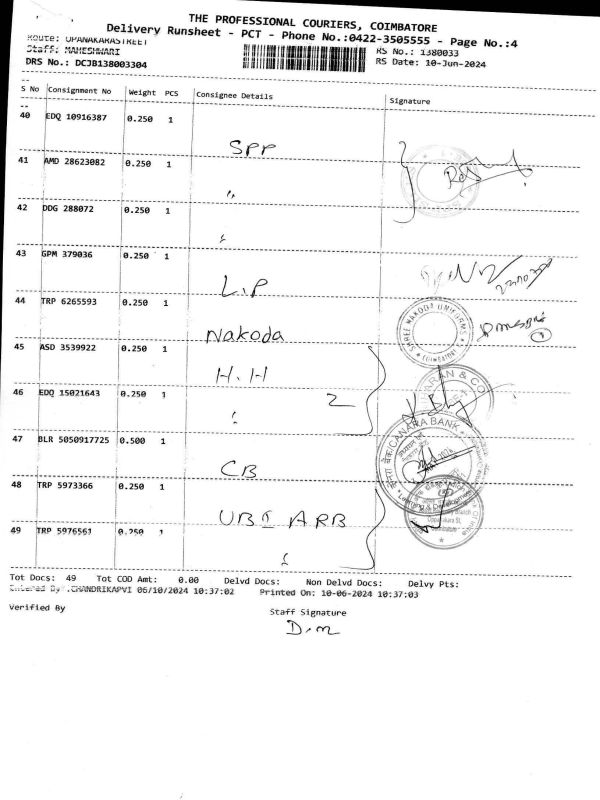 THE PROFESSIONAL COURIERS, COIMBATORE
Delivery Runsheet - PCT - Phone No.:0422-3505555 - Page No.:4
Route: UPANAKARASTREET
Staff: MAHESHWARI
RS No.: 1380033
DRS No.: DCJB138003304
RS Date: 10-Jun-2024
S No Consignment No Weight PCS Consignee Details Signature
40 EDQ 10916387 0.250 1 SPP
41 AMD 28623082 0.250 1 "
42 DDG 288072 0.250 1
43 GPM 379036 0.250 1 L.P
44 TRP 6265593 0.250 1 Nakoda
SHREE NAKODA UNIFORMS
COIMBATORE
45 ASD 3539922 0.250 1 H.H
46 EDQ 15021643 0.250 1 2
& CO
47 BLR 5050917725 0.500 1 CB
CANARA BANK
Learning & Development
48 TRP 5973366 0.250 1 UBI ARB
49 TRP 5976561 0.250 1
Tot Docs: 49 Tot COD Amt: 0.00 Delvd Docs: Non Delvd Docs: Delvy Pts:
Entered By :CHANDRIKAPVI 06/10/2024 10:37:02 Printed On: 10-06-2024 10:37:03
Verified By
Staff Signature
D.m